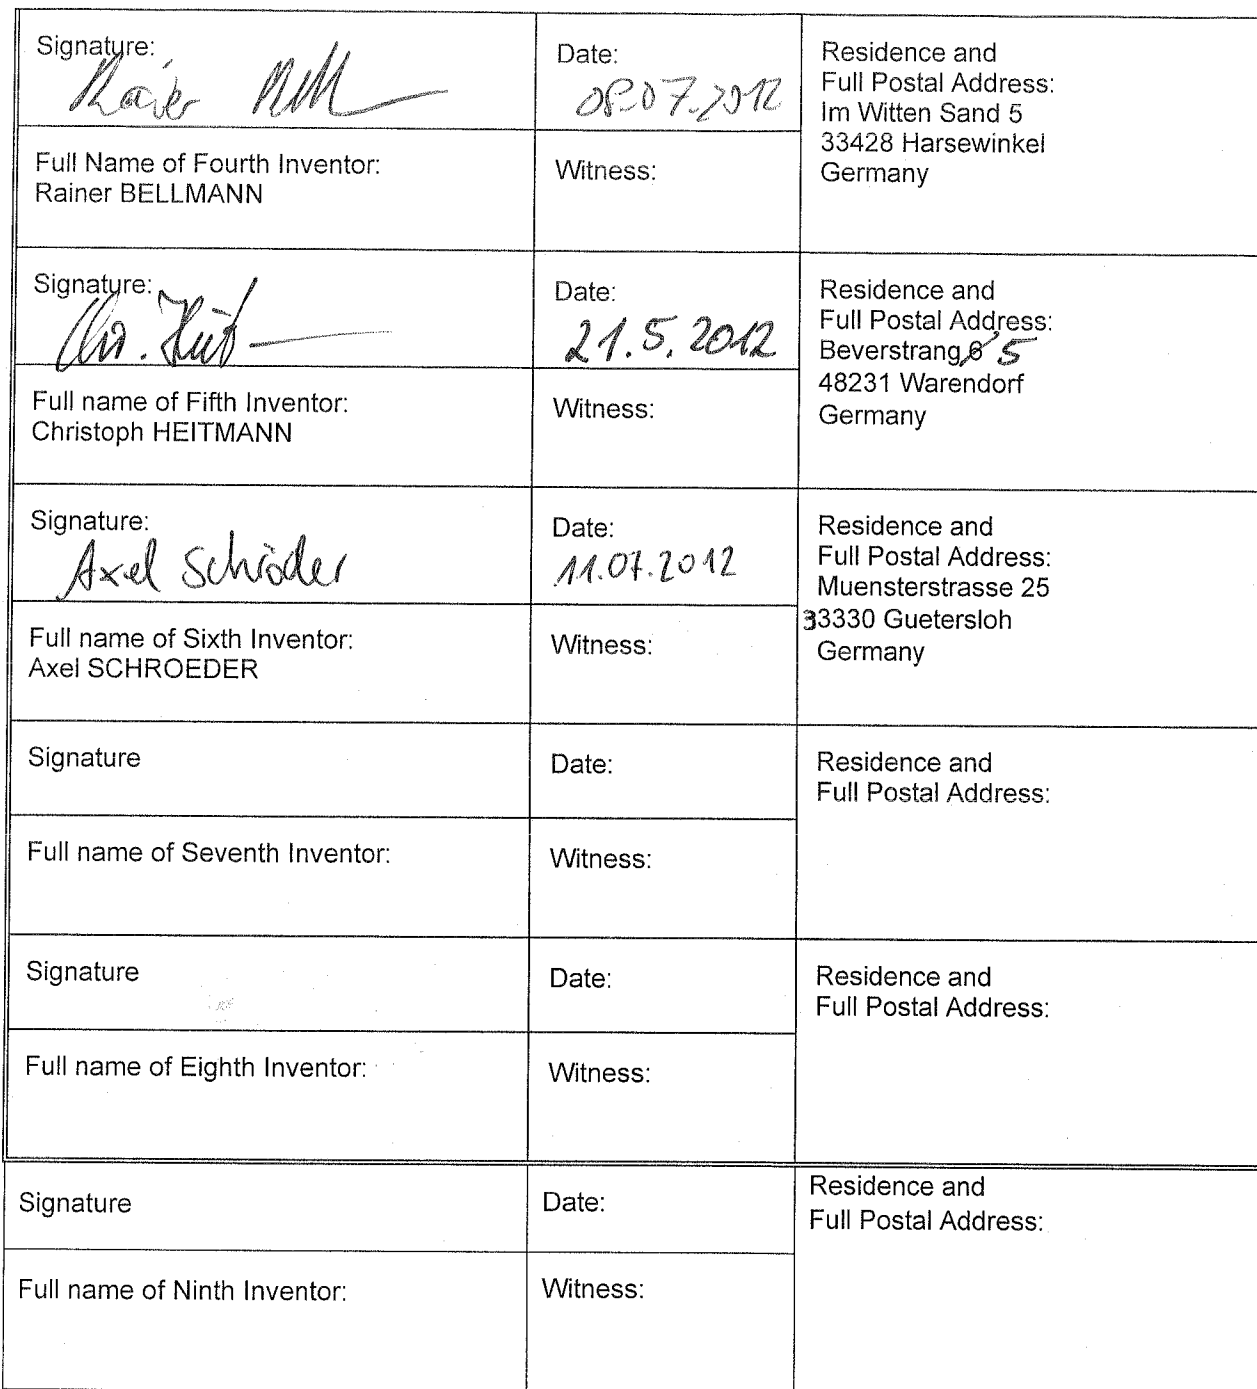 Signature:
Rainer
Date:
08.07.2012
Residence and
Full Postal Address:
Im Witten Sand 5
33428 Harsewinkel
Germany
Full Name of Fourth Inventor:
Rainer BELLMANN
Witness:
Signature:
Chr. Heit
Date:
21.5.2012
Residence and
Full Postal Address:
Beverstrang 6 5
48231 Warendorf
Germany
Full name of Fifth Inventor:
Christoph HEITMANN
Witness:
Signature:
Axel Schröder
Date:
11.07.2012
Residence and
Full Postal Address:
Muensterstrasse 25
33330 Guetersloh
Germany
Full name of Sixth Inventor:
Axel SCHROEDER
Witness:
Signature
Date:
Residence and
Full Postal Address:
Full name of Seventh Inventor:
Witness:
Signature
Date:
Residence and
Full Postal Address:
Full name of Eighth Inventor:
Witness:
Signature
Date:
Residence and
Full Postal Address:
Full name of Ninth Inventor:
Witness: